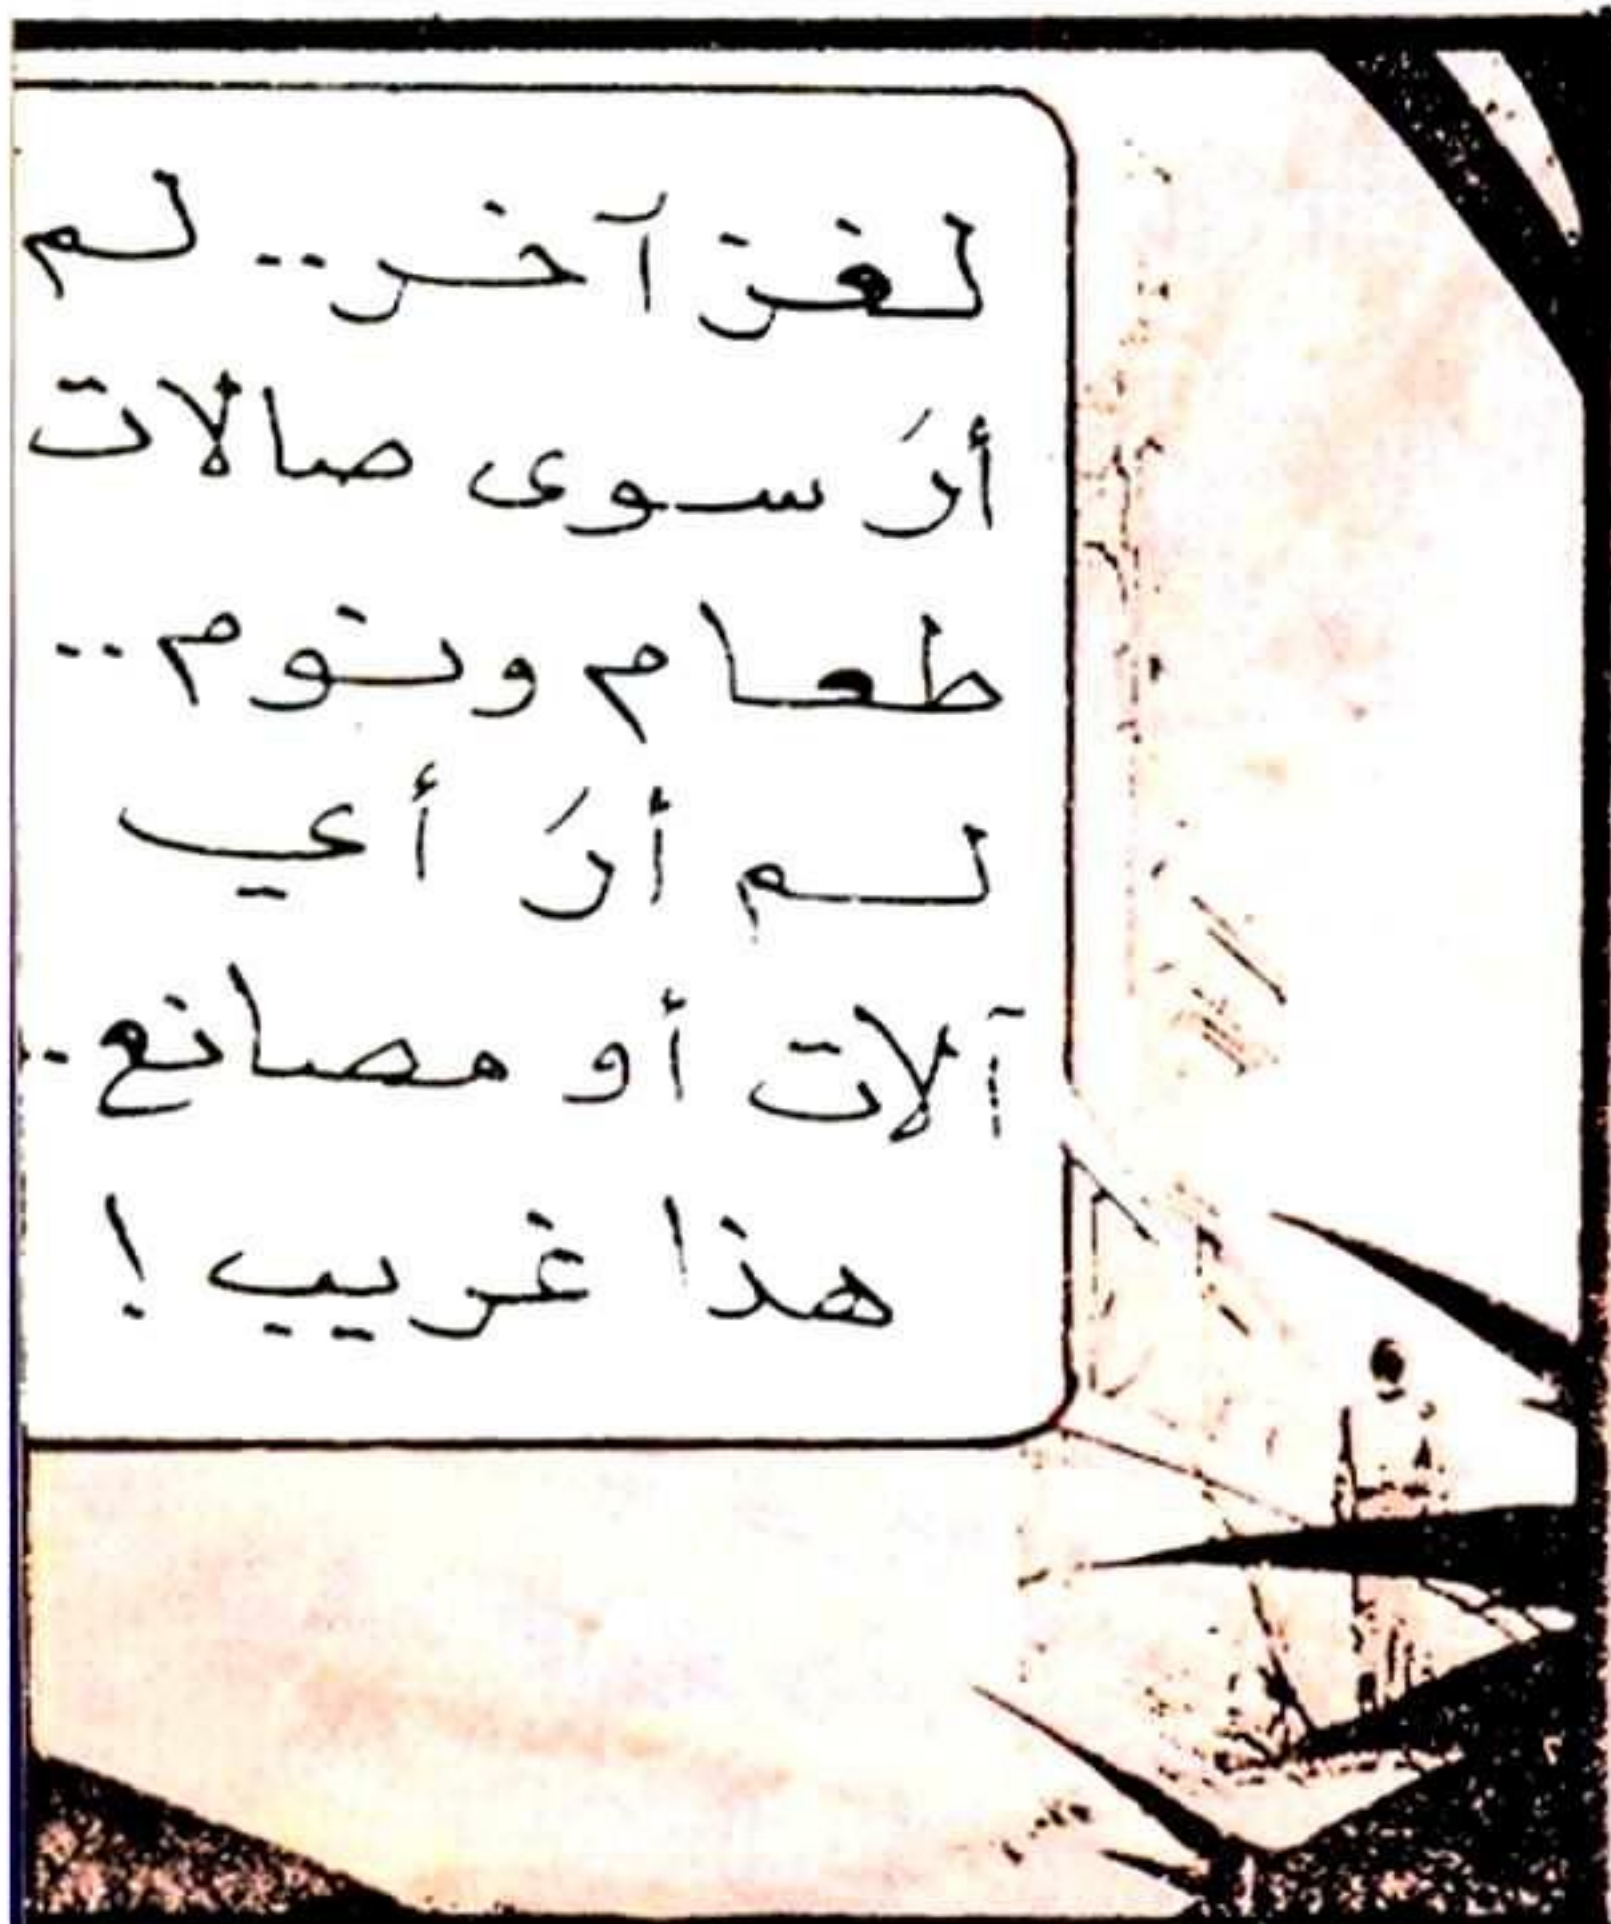 لغز آخر.. لم
أرَ سوى صالات
طعام ونوم..
لم أرَ أي
آلات أو مصانع..
هذا غريب !